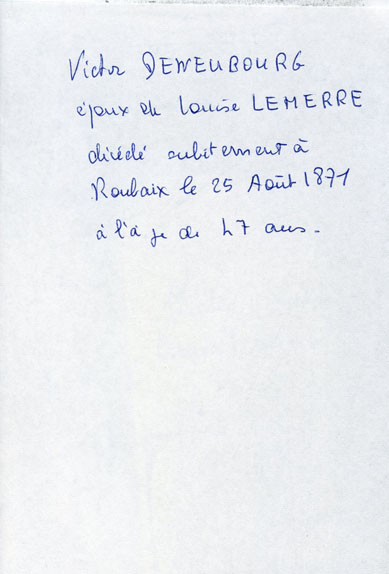 Victor DEWEUBOURG
époux de Louise LEMERRE
décédé subitement à
Roubaix le 25 Août 1871
à l'âge de 47 ans.